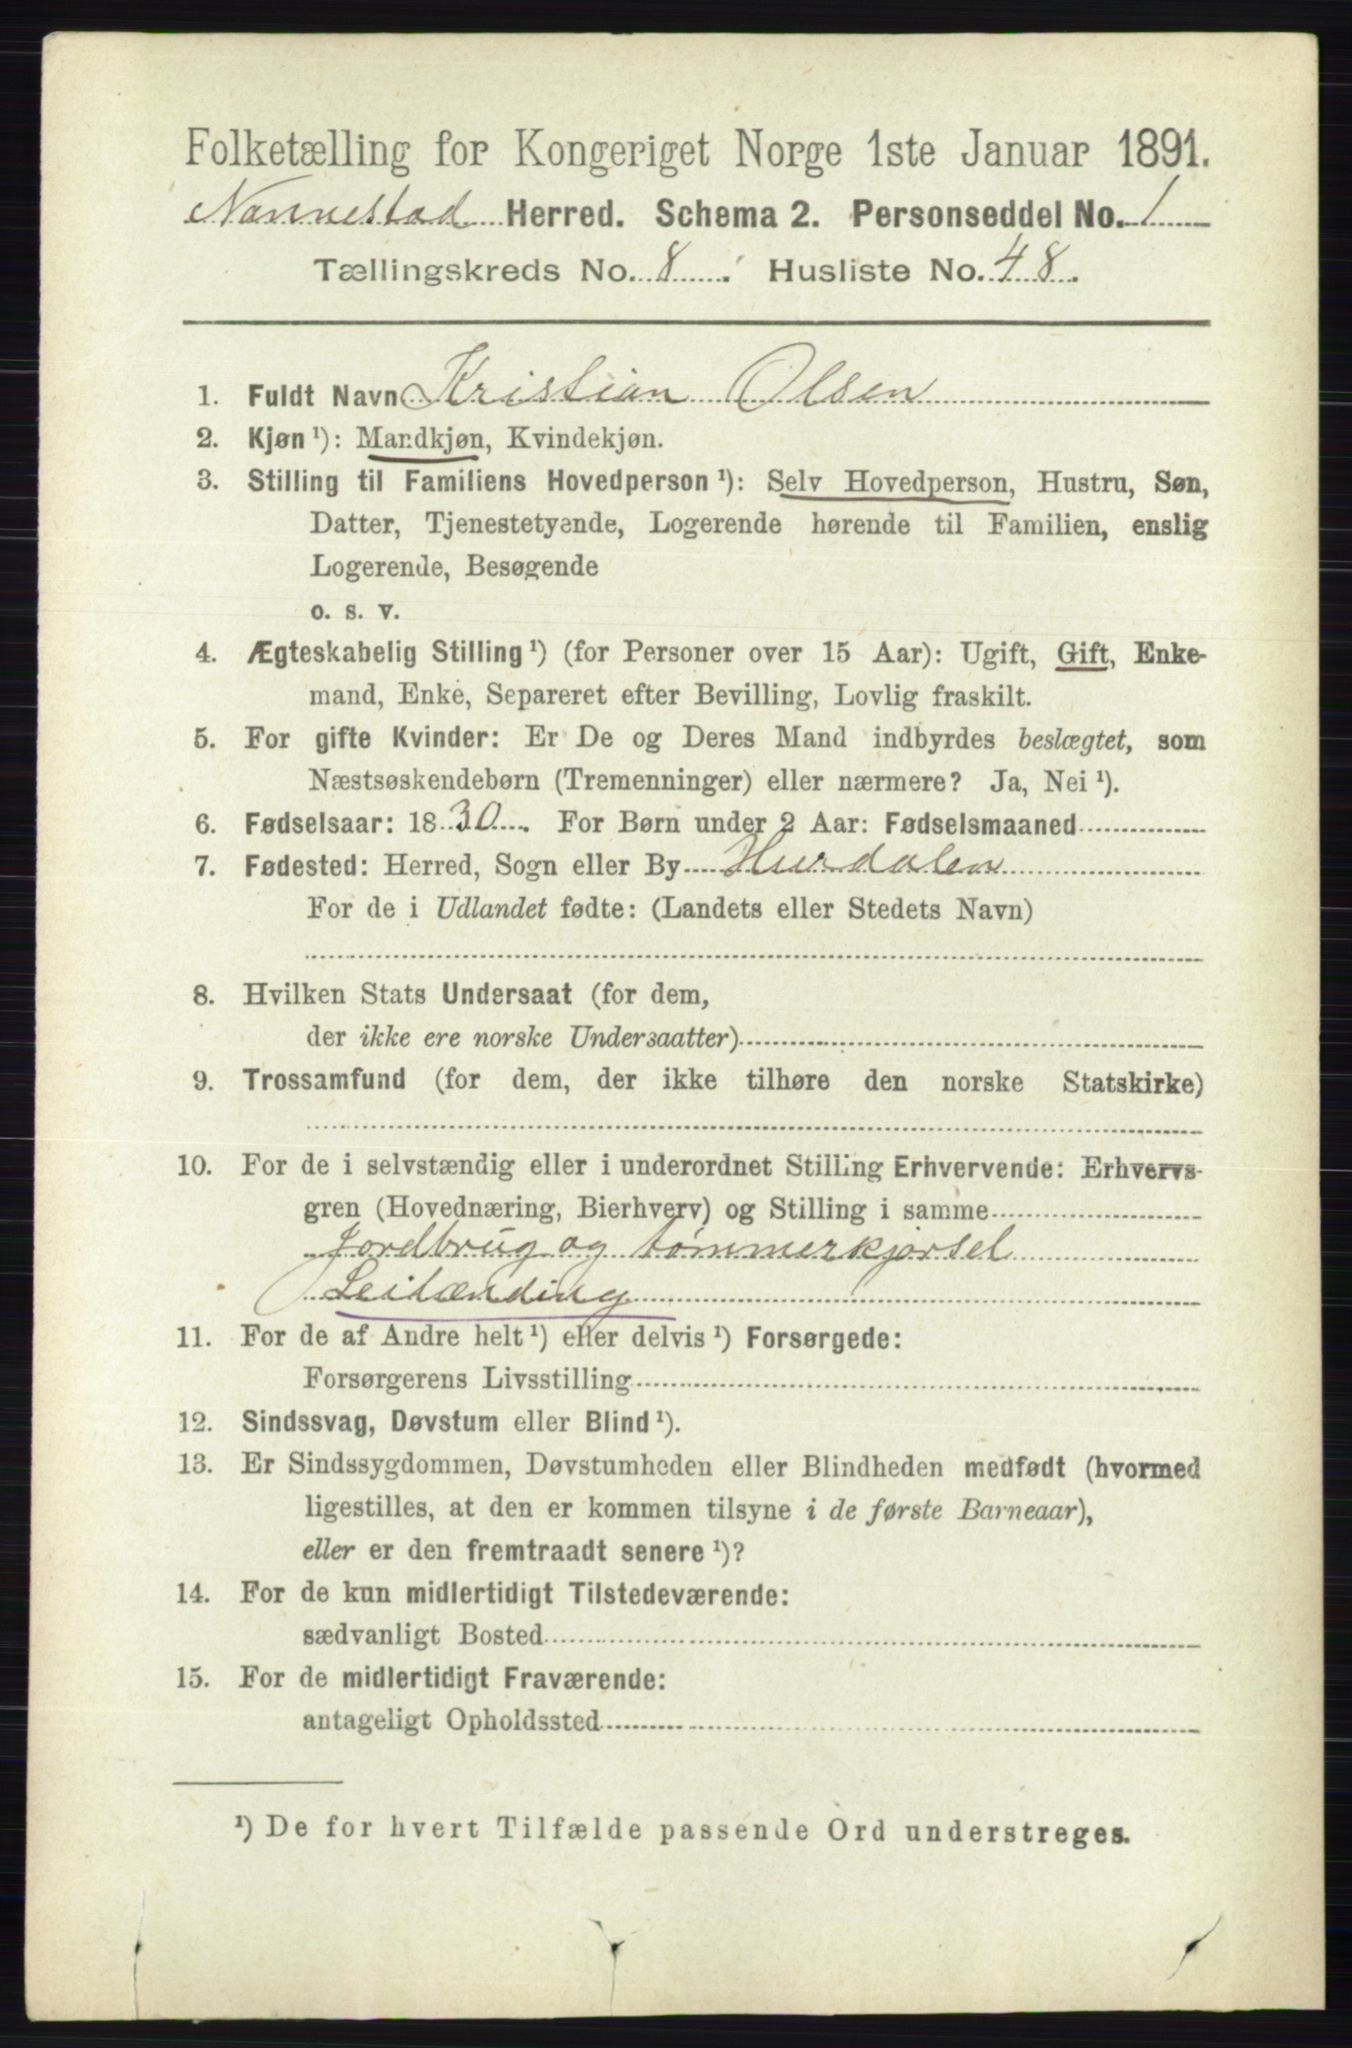 Folketælling for Kongeriget Norge 1ste Januar 1891.
Nannestad Herred. Schema 2. Personseddel No. 1
Tællingskreds No. 8. Husliste No. 48.
1. Fuldt Navn Kristian Olsen
2. Kjøn ¹): Mandkjøn, Kvindekjøn.
3. Stilling til Familiens Hovedperson ¹): Selv Hovedperson, Hustru, Søn,
Datter, Tjenestetyende, Logerende hørende til Familien, enslig
Logerende, Besøgende
o. s. v.
4. Ægteskabelig Stilling ¹) (for Personer over 15 Aar): Ugift, Gift, Enke-
mand, Enke, Separeret efter Bevilling, Lovlig fraskilt.
5. For gifte Kvinder: Er De og Deres Mand indbyrdes beslægtet, som
Næstsøskendebørn (Tremenninger) eller nærmere? Ja, Nei ¹).
6. Fødselsaar: 1830. For Børn under 2 Aar: Fødselsmaaned
7. Fødested: Herred, Sogn eller By Hurdalen
For de i Udlandet fødte: (Landets eller Stedets Navn)
8. Hvilken Stats Undersaat (for dem,
der ikke ere norske Undersaatter)
9. Trossamfund (for dem, der ikke tilhøre den norske Statskirke)
10. For de i selvstændig eller i underordnet Stilling Erhvervende: Erhvervs-
gren (Hovednæring, Bierhverv) og Stilling i samme
Jordbrug og tømmerkjørsel
Leilænding
11. For de af Andre helt ¹) eller delvis ¹) Forsørgede:
Forsørgerens Livsstilling
12. Sindssvag, Døvstum eller Blind ¹).
13. Er Sindssygdommen, Døvstumheden eller Blindheden medfødt (hvormed
ligestilles, at den er kommen tilsyne i de første Barneaar),
eller er den fremtraadt senere ¹)?
14. For de kun midlertidigt Tilstedeværende:
sædvanligt Bosted
15. For de midlertidigt Fraværende:
antageligt Opholdssted
¹) De for hvert Tilfælde passende Ord understreges.